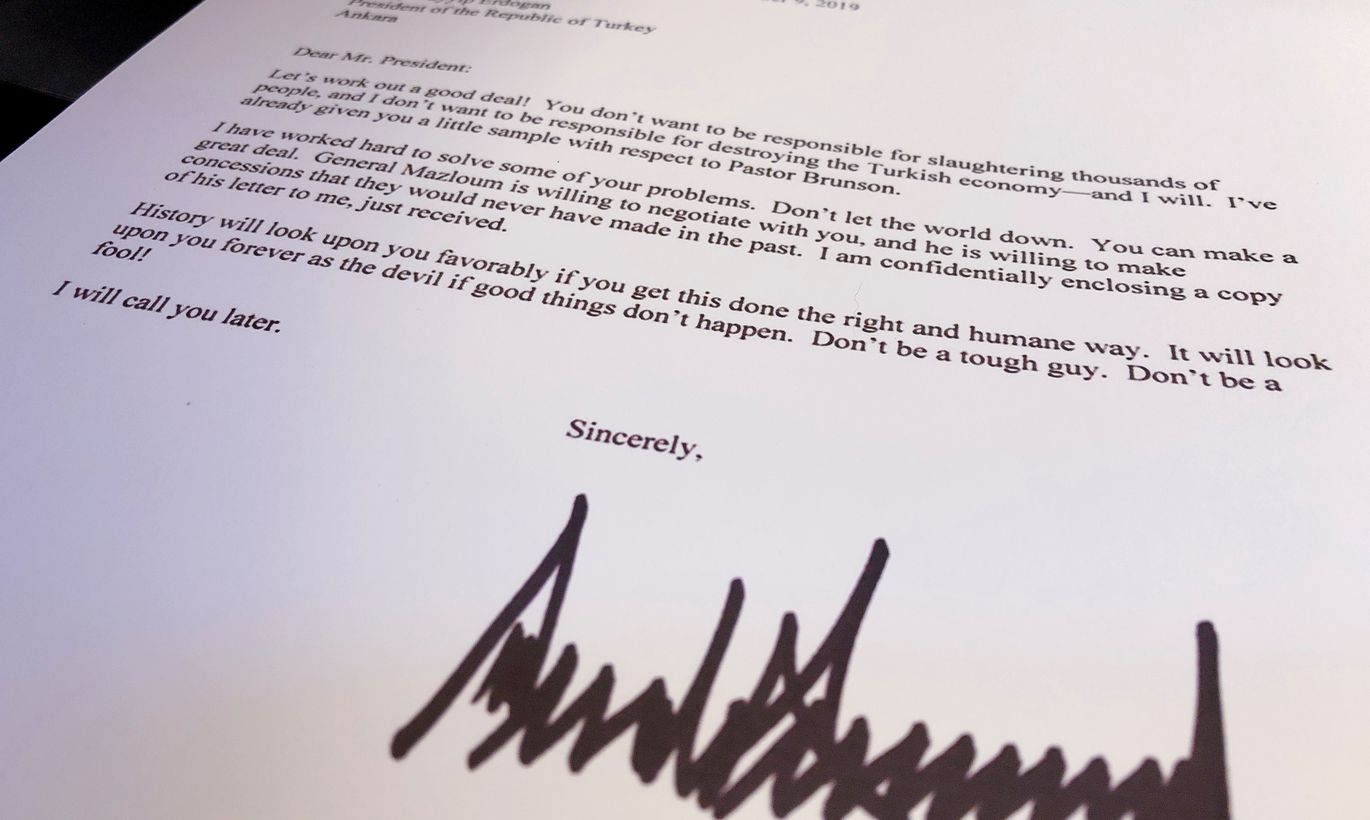 Erdogan
9, 2019
President of the Republic of Turkey
Ankara
Dear Mr. President:
Let's work out a good deal!  You don't want to be responsible for slaughtering thousands of
people, and I don't want to be responsible for destroying the Turkish economy—and I will.  I've
already given you a little sample with respect to Pastor Brunson.
I have worked hard to solve some of your problems.  Don't let the world down.  You can make a
great deal.  General Mazloum is willing to negotiate with you, and he is willing to make
concessions that they would never have made in the past.  I am confidentially enclosing a copy
of his letter to me, just received.
History will look upon you favorably if you get this done the right and humane way.  It will look
upon you forever as the devil if good things don't happen.  Don't be a tough guy.  Don't be a
fool!
I will call you later.
Sincerely,